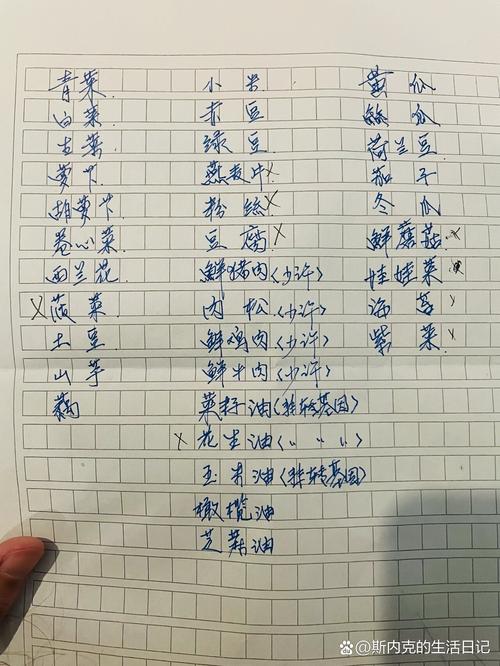 青菜.
白菜.
生菜.
萝卜.
胡萝卜.
卷心菜.
西兰花.
×菠菜.
土豆.
山芋
藕
小米
赤豆
绿豆
燕麦片×
粉絲×
豆腐×
鮮猪肉(少许)
肉松(少许)
鮮鸡肉(少许)
鮮牛肉(少许)
菜籽油(非转基因)
×花生油(〃 〃 〃)
玉米油(非转基因)
橄榄油
芝麻油
黄瓜
絲瓜
荷兰豆
茄子
冬瓜
鮮蘑菇×
娃娃菜
海苔×
紫菜×
Baidu百家号/斯内克的生活日记